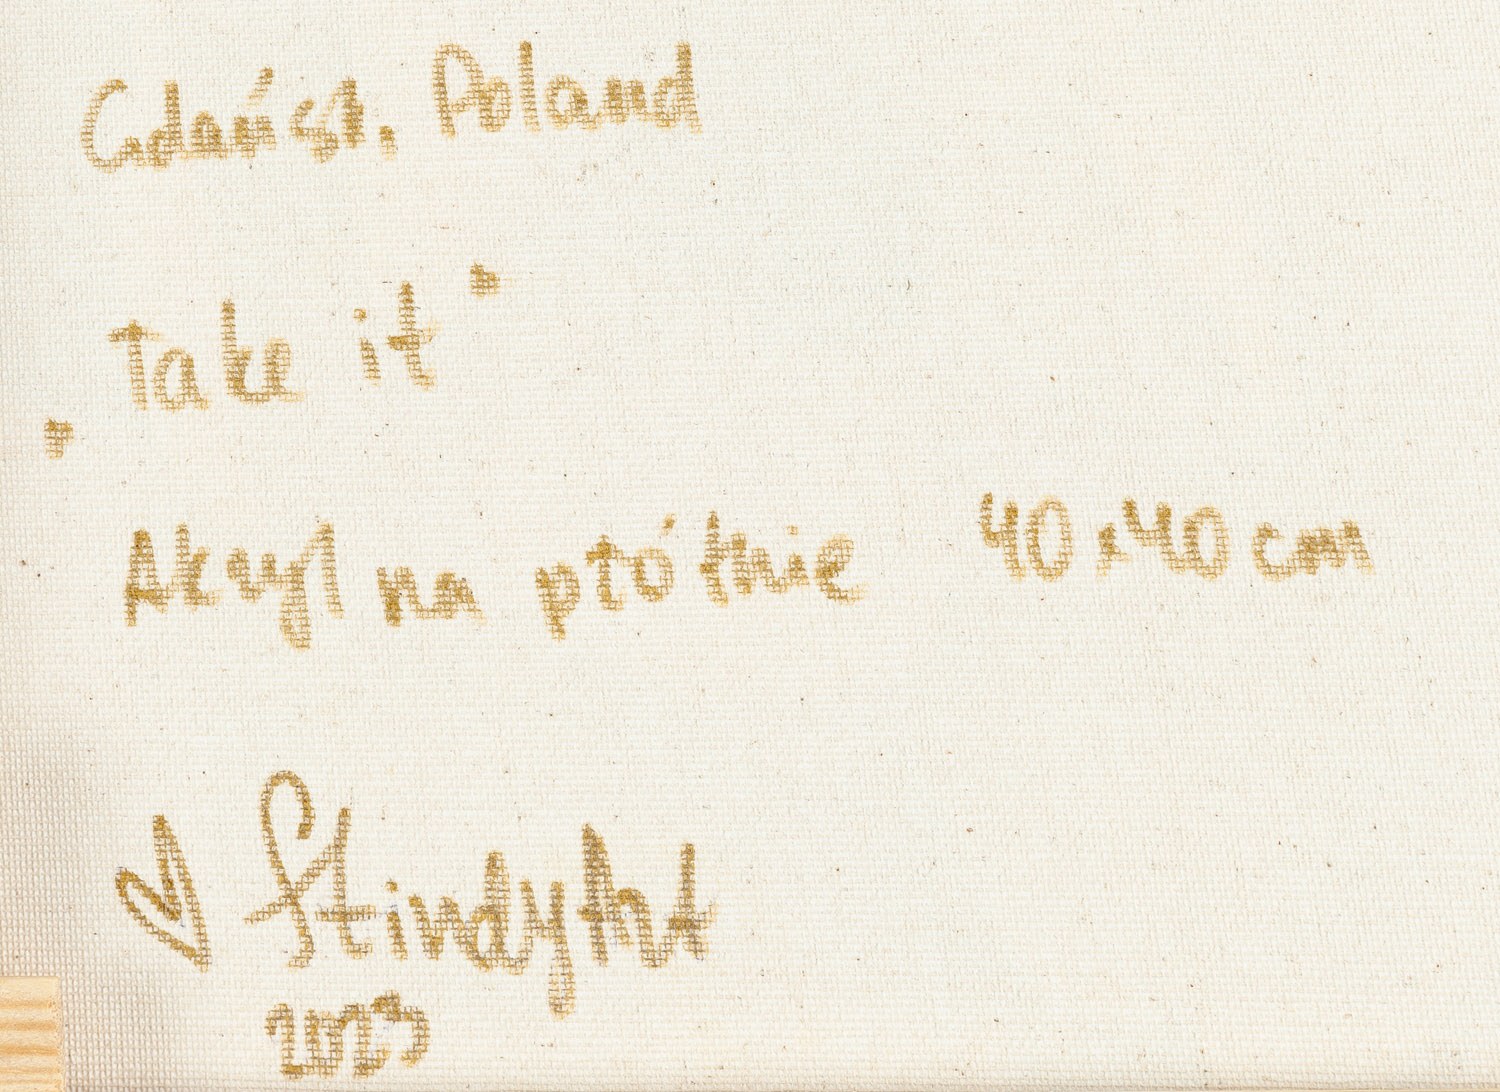 Gdańsk, Poland
„Take it"
Akryl na płótnie 40x40 cm
StindyArt
2023